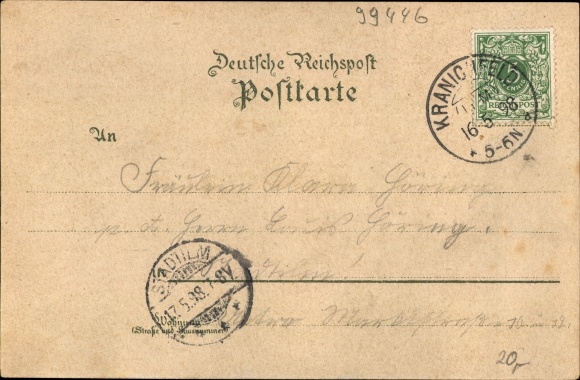 99446
Deutsche Reichspost
Postkarte
REICHSPOST
KRANICHFELD
16.5.98
5-6N
An
Fräulein Klara Höring
Herrn Louis Höring
STADTILM
17.5.98.7-8V
Wohnung
(Straße und Hausnummer)
20,-